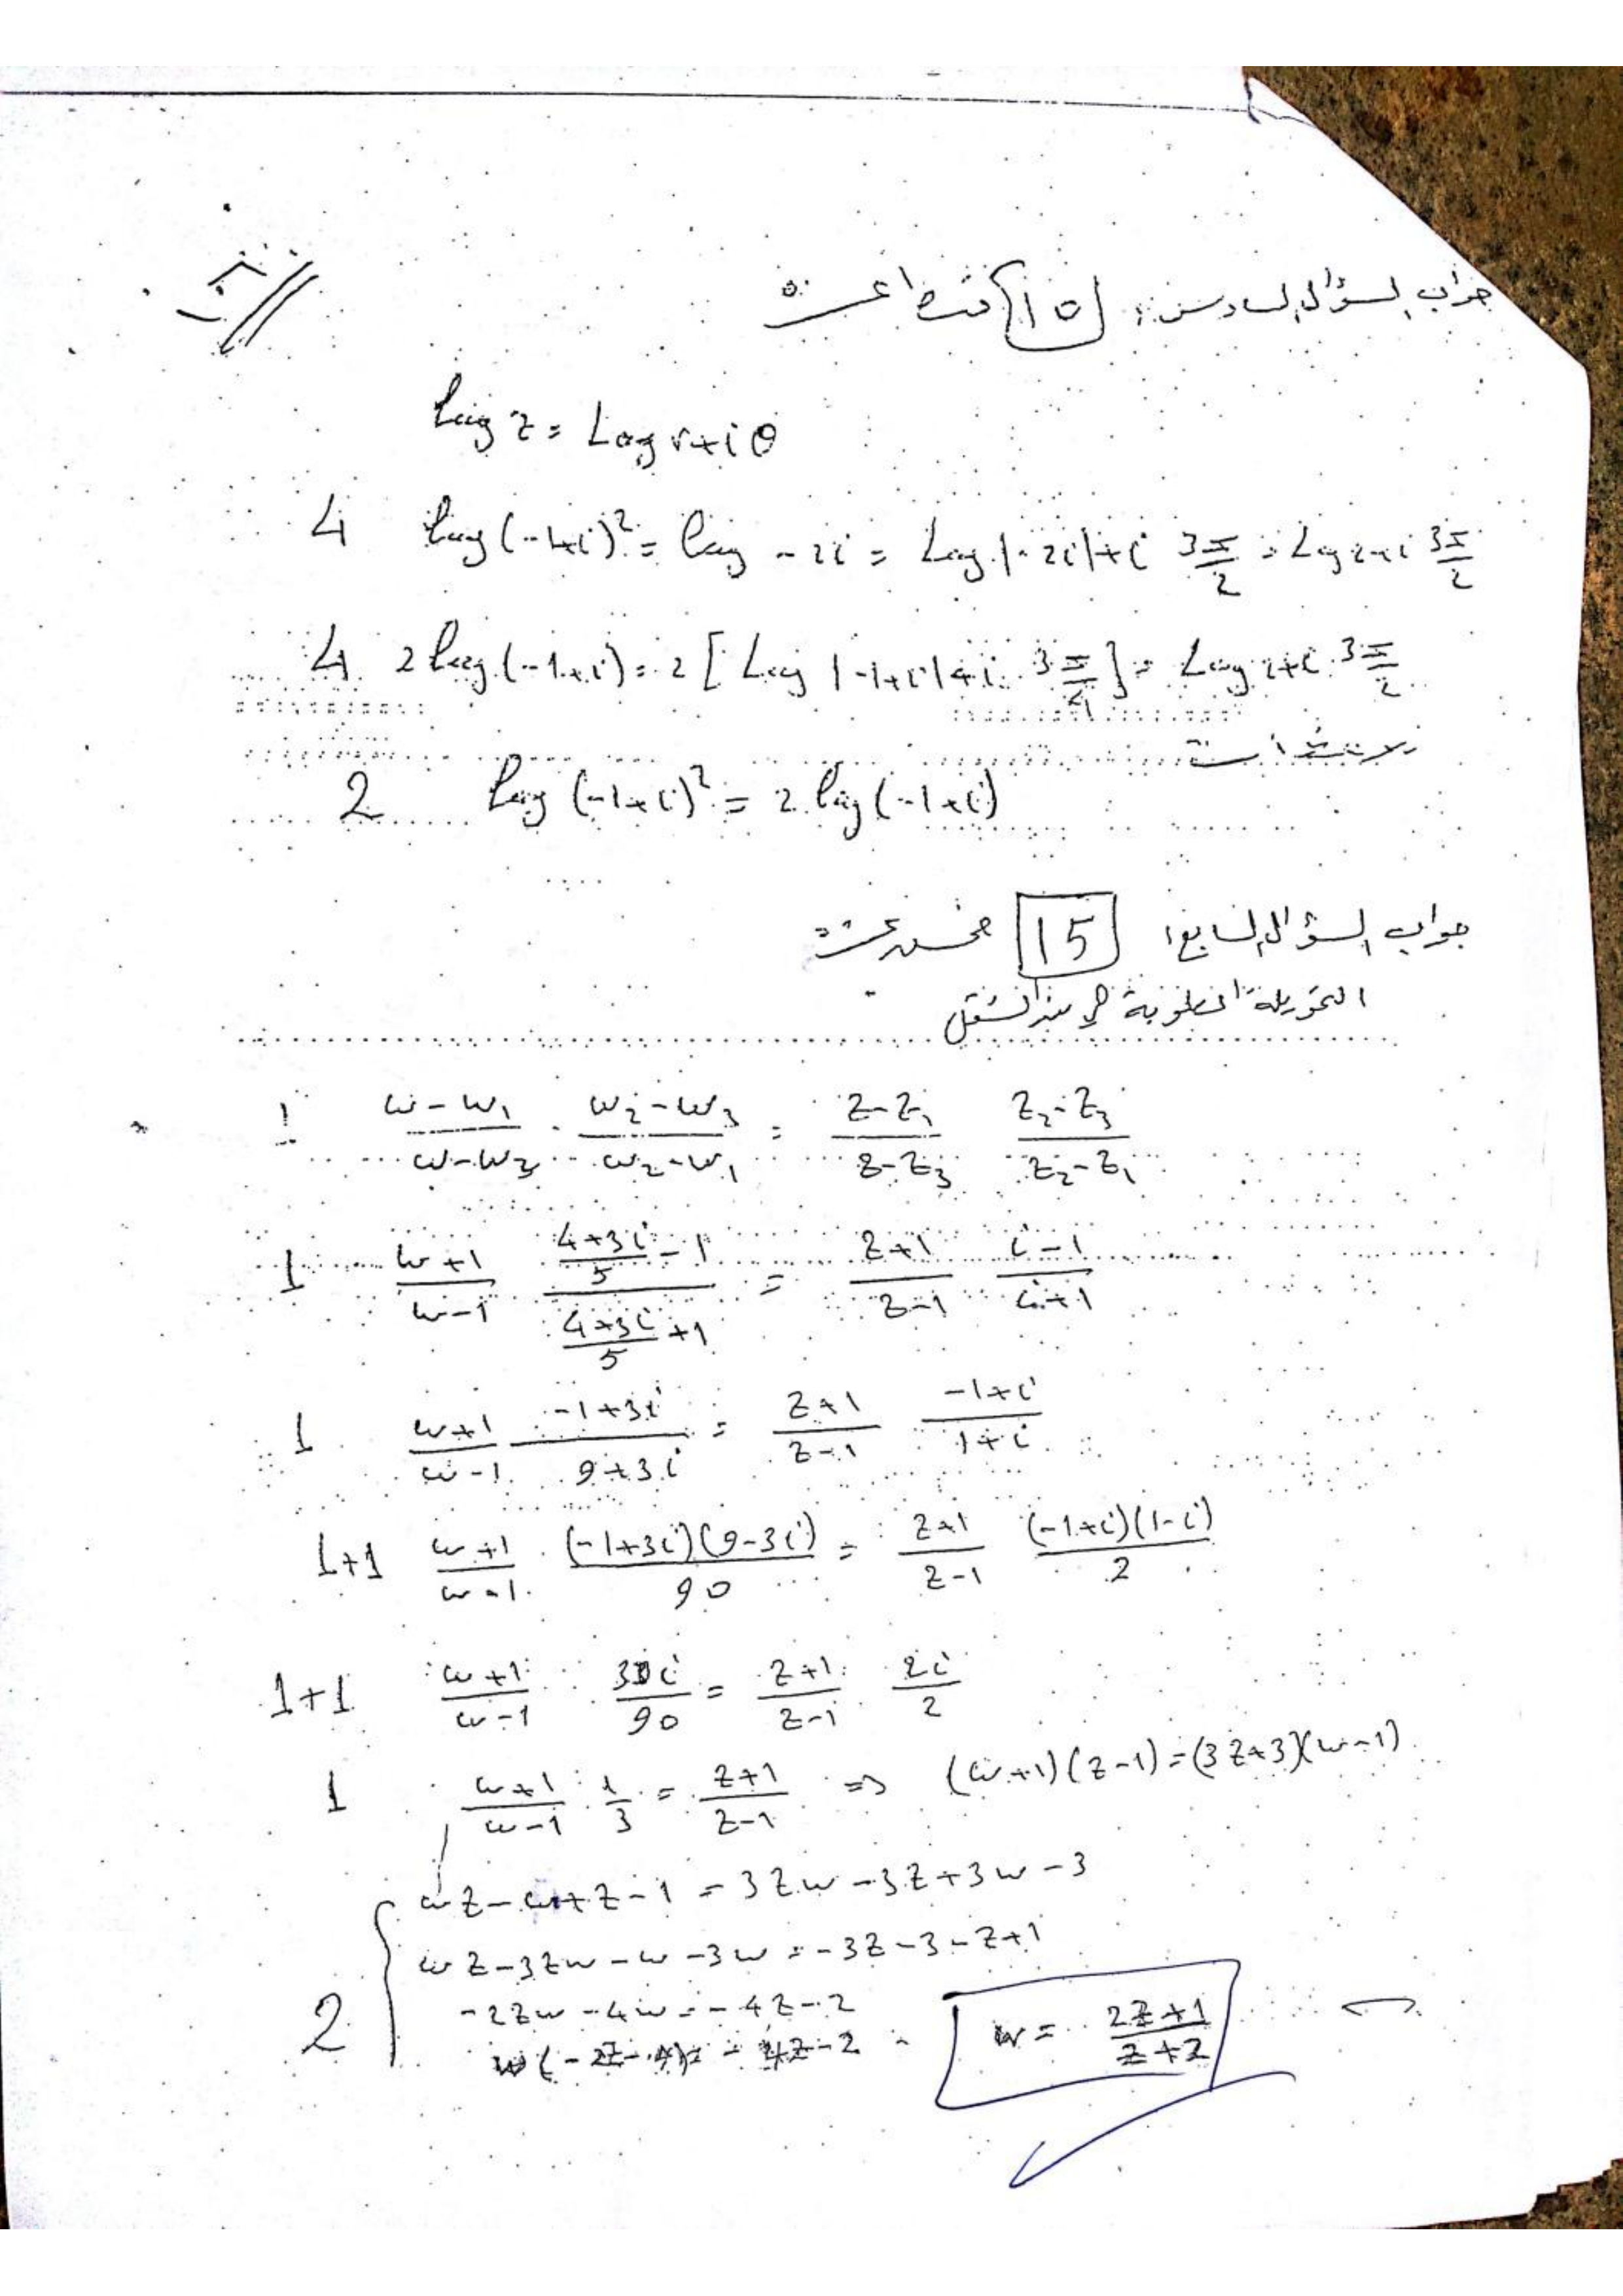 جواب السؤال السادس: 10
log z = Log r + i θ
4 log (-1+i)² = log -2i = Log |-2i| + i 3π/2 = Log 2 + i 3π/2
4 2 log (-1+i) = 2 [ Log |-1+i| + i 3π/4 ] = Log 2 + i 3π/2
2 log (-1+i)² = 2 log (-1+i)
جواب السؤال السابع: 15 خمس عشرة
التحويلة المطلوبة هي من الشكل
1 (w-w₁)/(w-w₃) · (w₂-w₃)/(w₂-w₁) = (z-z₁)/(z-z₃) (z₂-z₃)/(z₂-z₁)
1 (w+1)/(w-1) ((4+3i)/5 - 1)/((4+3i)/5 + 1) = (z+1)/(z-1) (i-1)/(i+1)
1 (w+1)/(w-1) (-1+3i)/(9+3i) = (z+1)/(z-1) (-1+i)/(1+i)
1+1 (w+1)/(w-1) · (-1+3i)(9-3i)/90 = (z+1)/(z-1) (-1+i)(1-i)/2
1+1 (w+1)/(w-1) 30i/90 = (z+1)/(z-1) 2i/2
1 (w+1)/(w-1) · 1/3 = (z+1)/(z-1) ⇒ (w+1)(z-1) = (3z+3)(w-1)
wz - w + z - 1 = 3zw - 3z + 3w - 3
wz - 3zw - w - 3w = -3z - 3 - z + 1
-2zw - 4w = -4z - 2
2 w(-2z-4) = -4z-2 w = (2z+1)/(z+2)